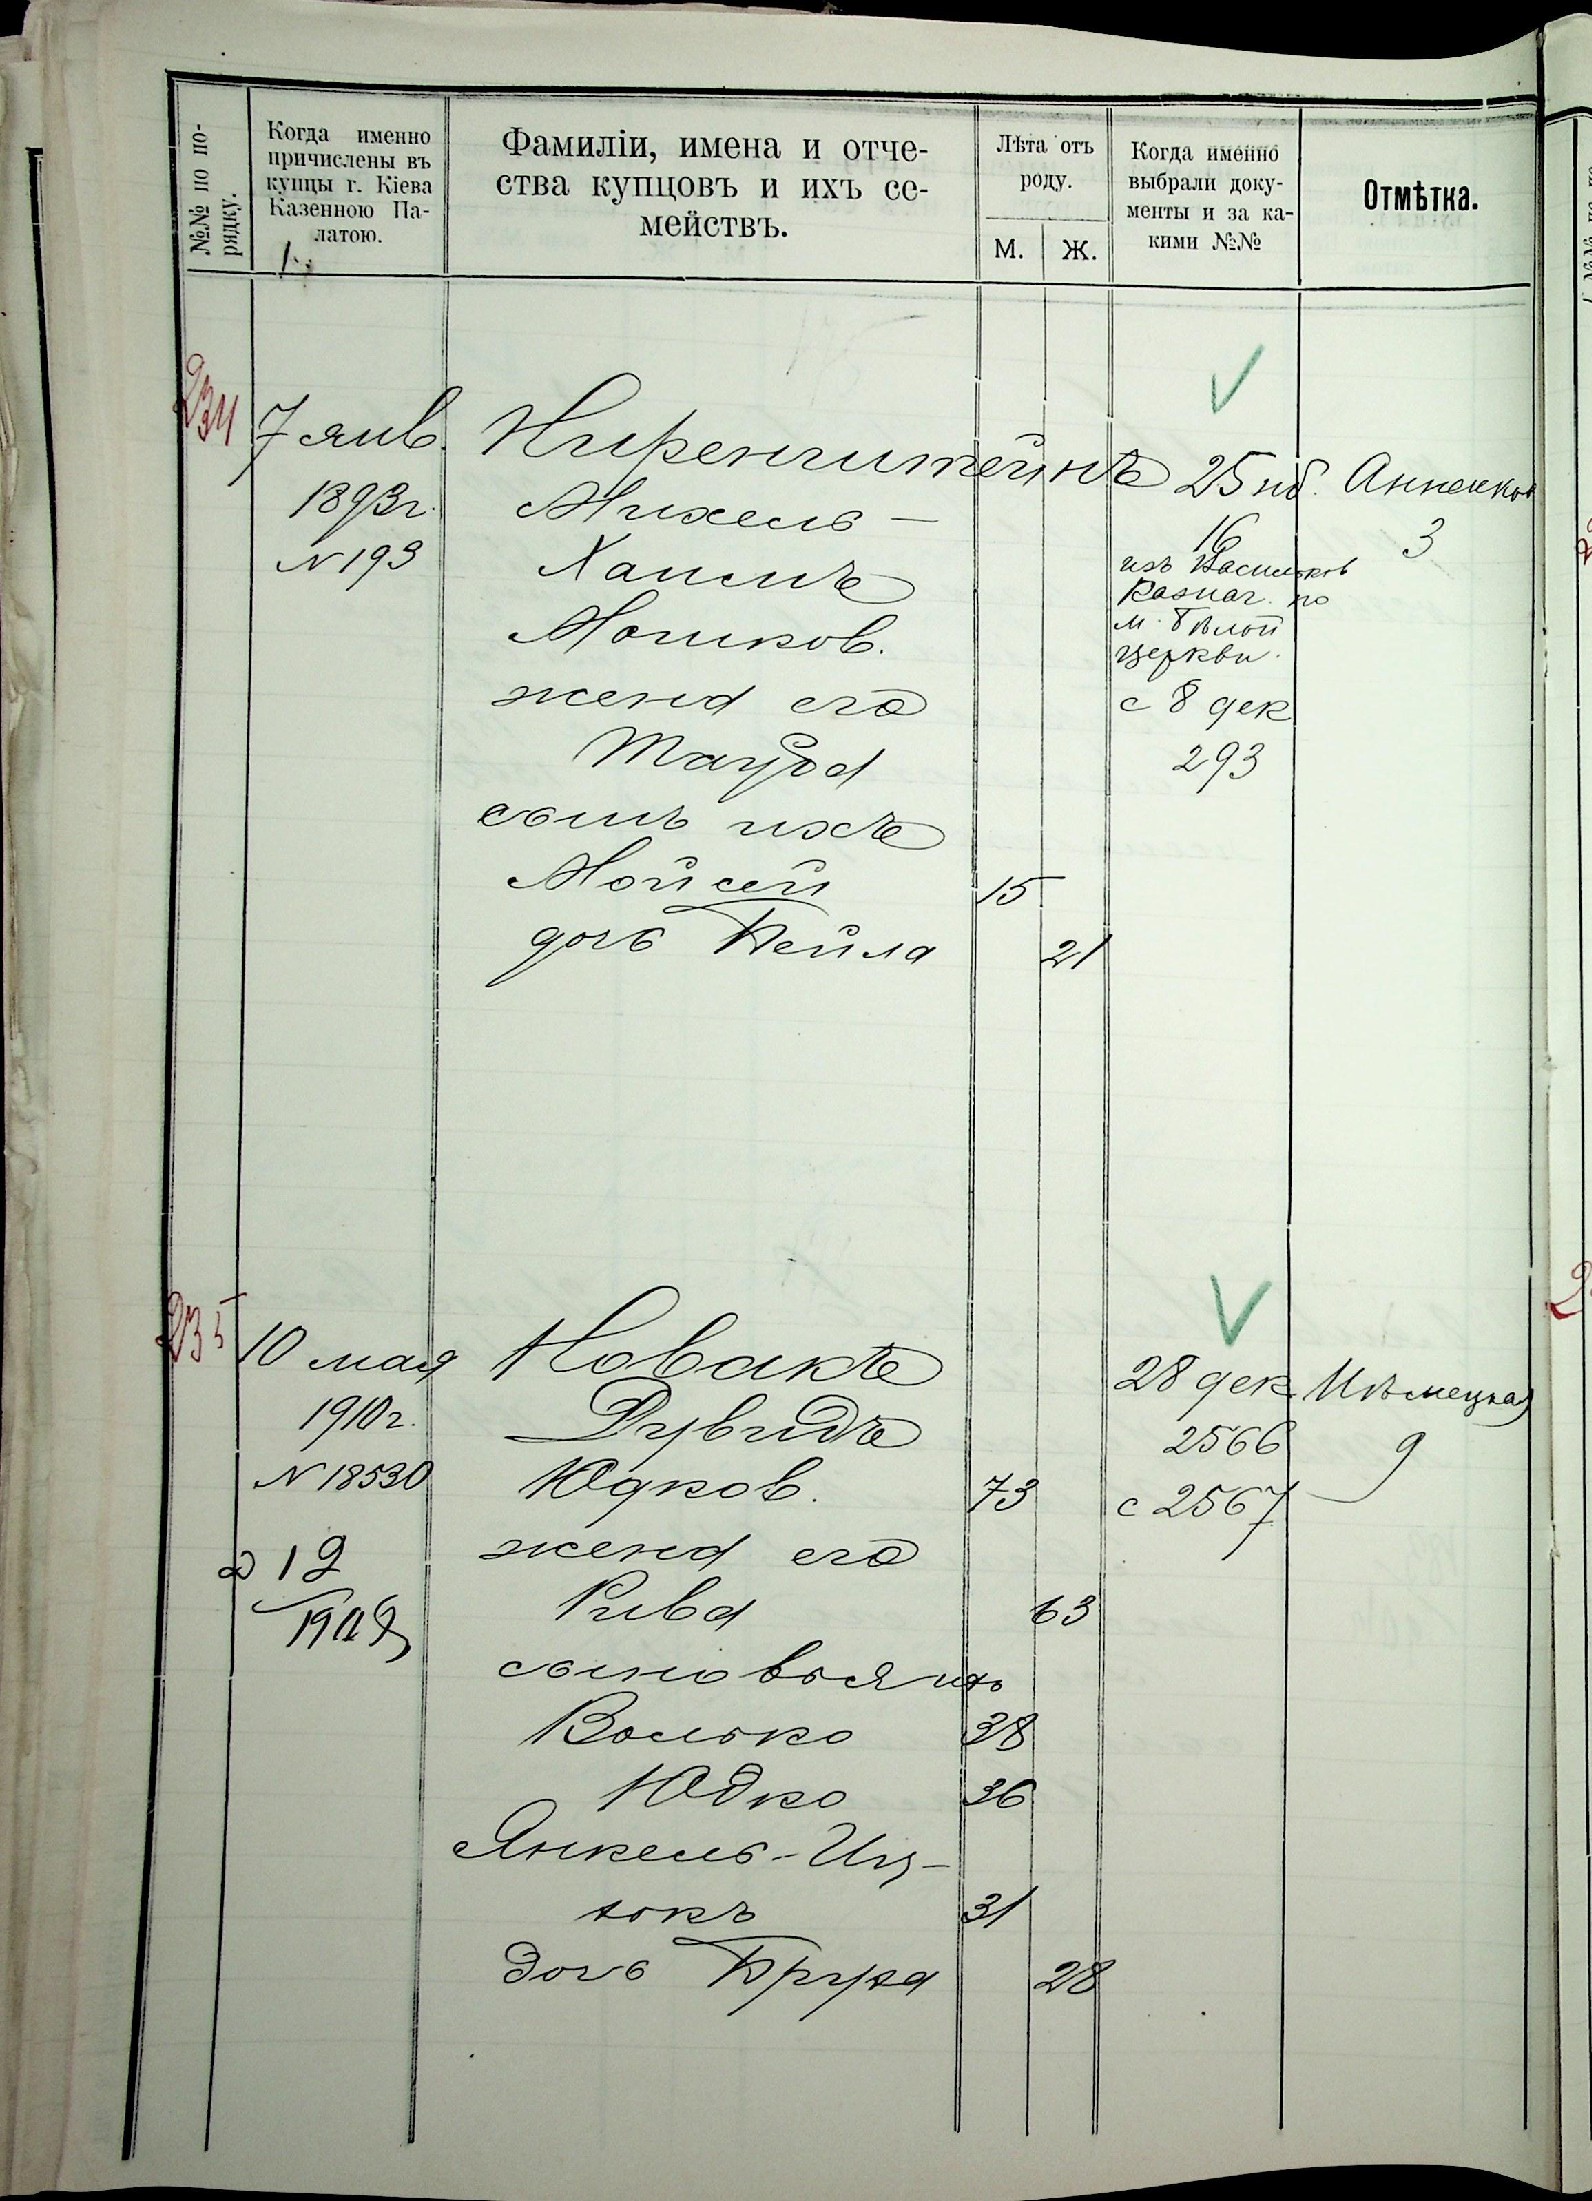 №№ по по-
рядку.
Когда именно
причислены въ
купцы г. Кіева
Казенною Па-
латою.
Фамиліи, имена и отче-
ства купцовъ и ихъ се-
мействъ.
Лѣта отъ
роду.
М. Ж.
Когда именно
выбрали доку-
менты и за ка-
кими №№
Отмѣтка.
234
7 янв.
1893 г.
N 193
Ниренштейнъ
Михель -
Хаимъ
Мошков.
жена его
Тауба
сынъ ихъ
Мойсей 15
дочь Бейла 21
25 нб.
16
изъ Васильков
Казнач. по
м. Бѣлой
Церкви.
с 8 дек
293
Анненков
3
235
10 мая
1910 г.
N 18530
12
Новакъ
Дувидъ
Юдков. 73
жена его
Рива 63
сыновья ихъ
Волько 38
Юдко 36
Янкель-Иц-
кокъ 31
дочь Бруха 28
28 дек
2566
с 2567
Нѣмецкая
9